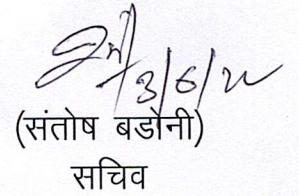 3/6/22
(संतोष बडोनी)
सचिव